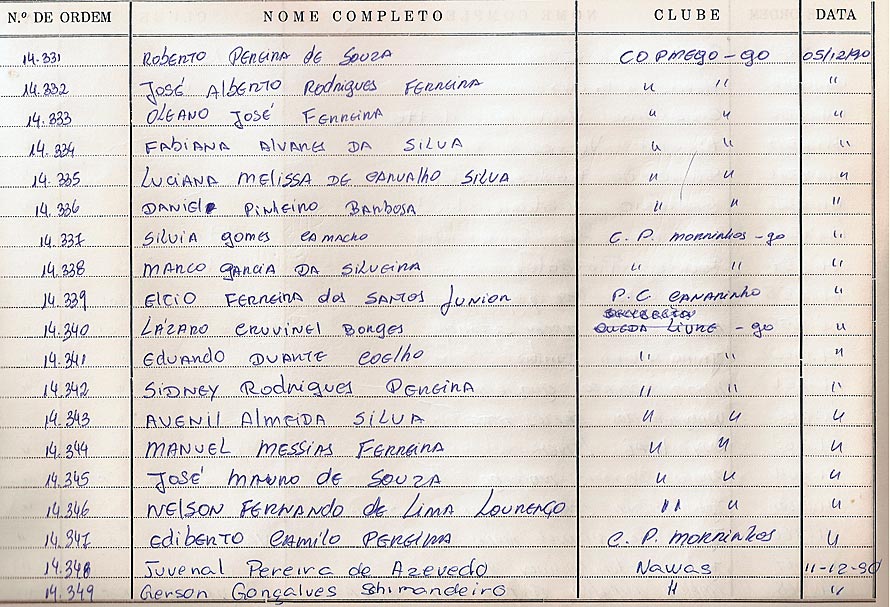 N.º DE ORDEM NOME COMPLETO CLUBE DATA
14.331 Roberto Pereira de Souza COPMEGO - GO 05/12/90
14.332 José Alberto Rodrigues Ferreira " " "
14.333 Oleano José Ferreira " " "
14.334 Fabiana Alvares da Silva " " "
14.335 Luciana Melissa de Carvalho Silva " " "
14.336 Daniel Pinheiro Barbosa " " "
14.337 Silvia Gomes Camacho C. P. Morrinhos - GO "
14.338 Marco Garcia da Silveira " " "
14.339 Elcio Ferreira dos Santos Junior P.C. Canarinho "
14.340 Lázaro Cruvinel Borges Queda Livre - GO "
14.341 Eduardo Duarte Coelho " " "
14.342 Sidney Rodrigues Pereira " " "
14.343 Avenil Almeida Silva " " "
14.344 Manuel Messias Ferreira " " "
14.345 José Mauro de Souza " " "
14.346 Nelson Fernando de Lima Lourenço " " "
14.347 Ediberto Camilo Pereira C. P. Morrinhos "
14.348 Juvenal Pereira de Azevedo Nawas 11-12-90
14.349 Gerson Gonçalves Schimandeiro " "